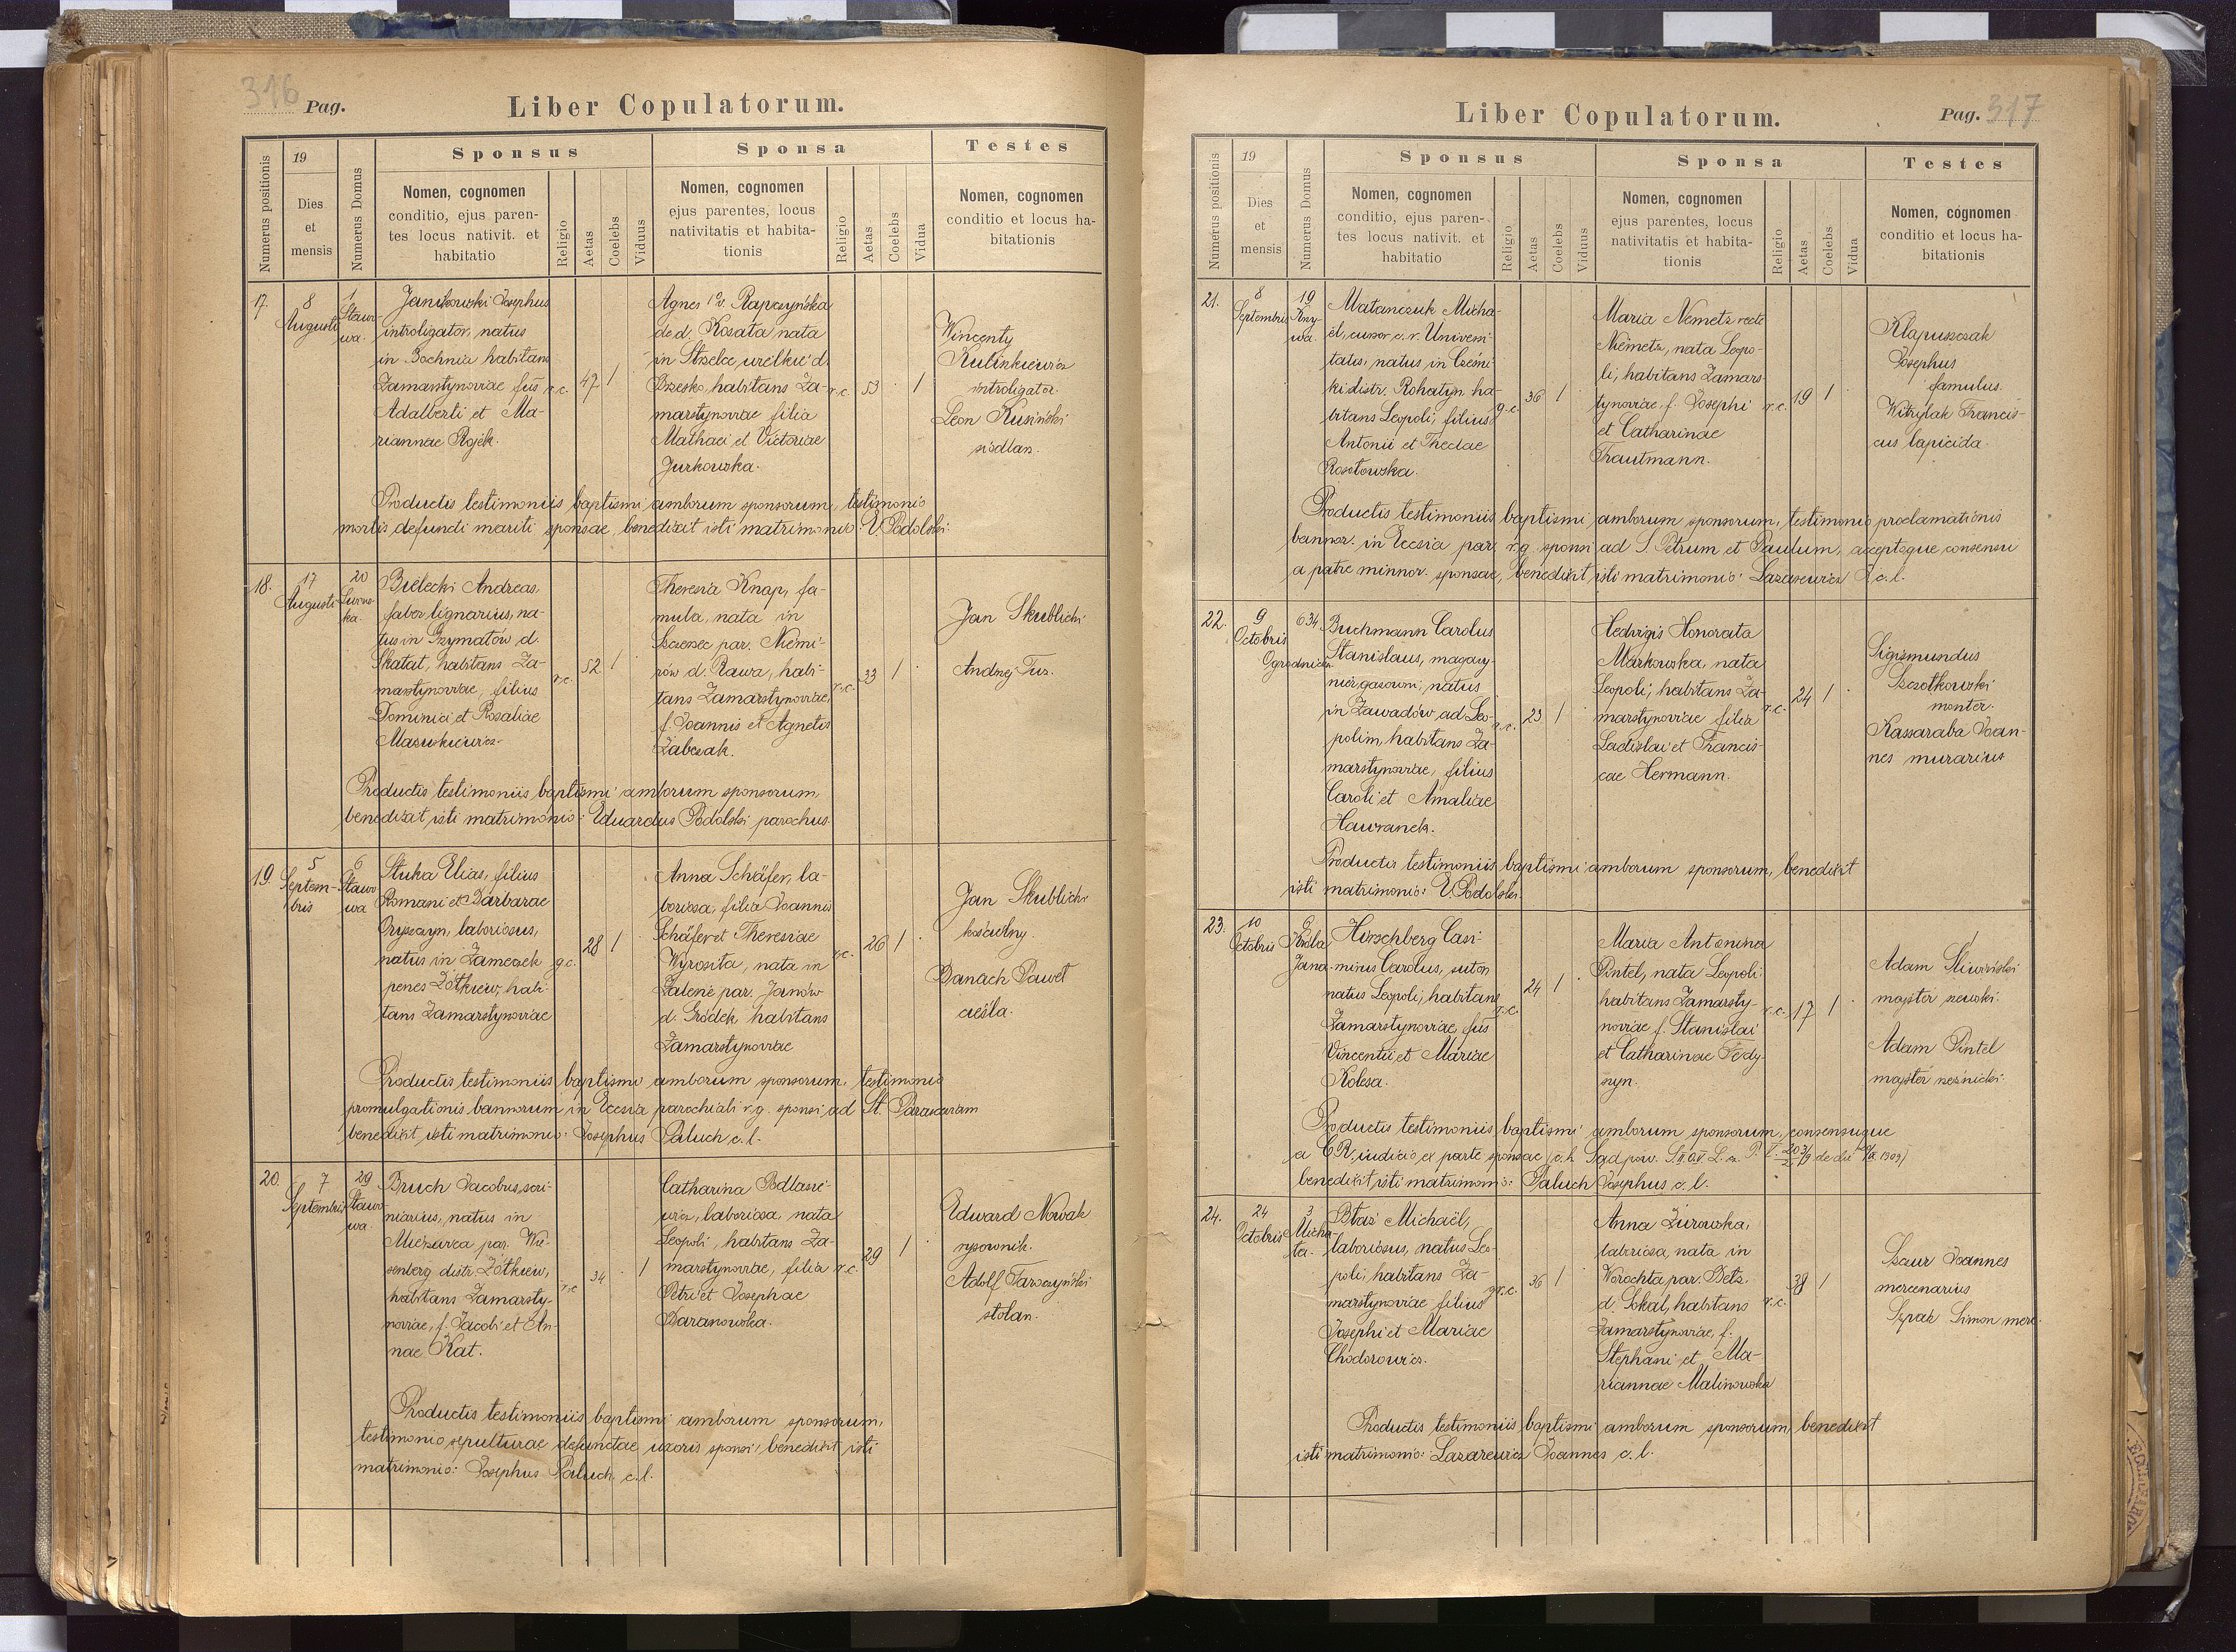 316 Pag.
Liber Copulatorum.
Numerus positionis
19
Dies
et
mensis
Numerus Domus
Sponsus
Nomen, cognomen
conditio, ejus paren-
tes locus nativit. et
habitatio
Religio
Aetas
Coelebs
Viduus
Sponsa
Nomen, cognomen
ejus parentes, locus
nativitatis et habita-
tionis
Religio
Aetas
Coelebs
Vidua
Testes
Nomen, cognomen
conditio et locus ha-
bitationis
17.
8
Augusti
1
Stawo-
wa.
Janikowski Josephus
introligator, natus
in Bochnia habitans
Zamarstynoviae fius
Adalberti et Ma-
riannae Rojek.
r.c.
47
1
Agnes 1º v. Rapczyńska
de d. Kosata nata
in Strzelce wielkie d.
Brzesko, habitans Za-
marstynoviae filia
Mathaei et Victoriae
Jurkowska.
r.c.
53
1
Wincenty
Kulinkiewicz
introligator.
Leon Kusiński
siodlarz.
Productis testimoniis baptismi amborum sponsorum, testimonio
mortis defuncti mariti sponsae, benedixit isti matrimonio: E. Podolski.
18.
17
Augusti
20
ka.
Bielecki Andreas,
faber lignarius, na-
tus in Grzymałów d.
Skałat, habitans Za-
marstynoviae, filius
Dominici et Rosaliae
Maszkiewicz.
r.c.
52
1
Theresia Knap, fa-
mula, nata in
Szczerzec par. Niemi-
rów d. Rawa, habi-
tans Zamarstynoviae,
f. Joannis et Agnetis
Zabczak.
r.c.
33
1
Jan Skublicki
Andrzej Tuz.
Productis testimoniis baptismi amborum sponsorum,
benedixit isti matrimonio: Eduardus Podolski parochus.
19.
5
Septem-
bris
6
Stawo
wa
Stuka Elias, filius
Romani et Barbarae
Cryszczyn, laboriosus,
natus in Zameczek
penes Żółkiew, habi-
tans Zamarstynoviae
g.c.
28
1
Anna Schäfer, la-
boriosa, filia Joannis
Schäfer et Theresiae
Wyrosita, nata in
Zalene par. Janów
d. Gródek, habitans
Zamarstynoviae
r.c.
26
1
Jan Skublicki
kościelny.
Banach Paweł
cieśla.
Productis testimoniis baptismi amborum sponsorum, testimonio
promulgationis bannorum in Eccsia parochiali r.g. sponsi ad St. Parascaviam
benedixit isti matrimonio: Josephus Paluch c.l.
20.
7
Septembris
29
Stawo
wa.
Bruch Jacobus, scri-
niarius, natus in
Mierzwica par. Wie-
senberg distr. Żółkiew,
habitans Zamarsty-
noviae, f. Jacobi et An-
nae Kat.
r.c
34
1
Catharina Podlasie-
wicz, laboriosa, nata
Leopoli, habitans Za-
marstynoviae, filia
Petri et Josephae
Baranowska.
r.c.
29
1
Edward Nowak
rysownik.
Adolf Tarczyński
stolarz.
Productis testimoniis baptismi amborum sponsorum,
testimonio sepulturae defunctae uxoris sponsi, benedixit isti
matrimonio: Josephus Paluch c.l.
Liber Copulatorum.
Pag. 317
Numerus positionis
19
Dies
et
mensis
Numerus Domus
Sponsus
Nomen, cognomen
conditio, ejus paren-
tes locus nativit. et
habitatio
Religio
Aetas
Coelebs
Viduus
Sponsa
Nomen, cognomen
ejus parentes, locus
nativitatis et habita-
tionis
Religio
Aetas
Coelebs
Vidua
Testes
Nomen, cognomen
conditio et locus ha-
bitationis
21.
8
Septembris
19
wa.
Matanczuk Micha-
ël, cursor c. r. Universi-
tatis, natus in Cześni-
ki distr. Rohatyn, ha-
bitans Leopoli, filius
Antonii et Theclae
Rosołowska.
g.c.
36
1
Maria Nemetz recte
Niemetz, nata Leopo-
li, habitans Zamars-
tynoviae, f. Josephi
et Catharinae
Trautmann.
r.c.
19
1
Kłapuszczak
Josephus
famulus.
Witrylak Francis-
cus lapicida.
Productis testimoniis baptismi amborum sponsorum, testimonio proclamationis
bannor. in Eccsia par. r.g. sponsi ad S. Petrum et Paulum, acceptoque consensu
a patre minnor. sponsae, benedixit isti matrimonio: Lazarewicz J. c.l.
22.
9
Octobris
634
Ogrodnicka
Buchmann Carolus
Stanislaus, magazy-
nier gazowni, natus
in Zawadów ad Leo-
polim, habitans Za-
marstynoviae, filius
Caroli et Amaliae
Hawranek.
r.c.
23
1
Hedvigis Honorata
Markowska, nata
Leopoli, habitans Za-
marstynoviae filia
Ladislai et Francis-
cae Hermann.
r.c.
24
1
Sigismundus
Szczotkowski
monter.
Kassaraba Joan-
nes murarius
Productis testimoniis baptismi amborum sponsorum, benedixit
isti matrimonio: E. Podolski.
23.
10
Octobris
6
Króla
Jana
Hirschberg Casi-
mirus Carolus, sutor
natus Leopoli, habitans
Zamarstynoviae, fius
Vincentii et Mariae
Kolesa.
r.c.
24
1
Maria Antonina
Pintel, nata Leopoli
habitans Zamarsty-
noviae f. Stanislai
et Catharinae Fedy-
szyn.
r.c.
17
1
Adam Śliwiński
majster szewski.
Adam Pintel
majster rzeźnicki.
Productis testimoniis baptismi amborum sponsorum, consensuque
a C.R. iudicio ex parte sponsae
benedixit isti matrimonio: Paluch Josephus c.l.
24.
24
Octobris
3
Micha-
ła.
Błaż Michaël,
laboriosus, natus Leo-
poli, habitans Za-
marstynoviae filius
Josephi et Mariae
Chodorowicz.
gr.c.
36
1
Anna Żurowska,
laboriosa, nata in
Worochta par. Bełz.
d. Sokal, habitans
Zamarstynoviae, f.
Stephani et Ma-
riannae Malinowska
r.c.
38
1
Szczur Joannes
mercenarius
Szpak Simon merc.
Productis testimoniis baptismi amborum sponsorum, benedixit
isti matrimonio: Lazarewicz Joannes c.l.